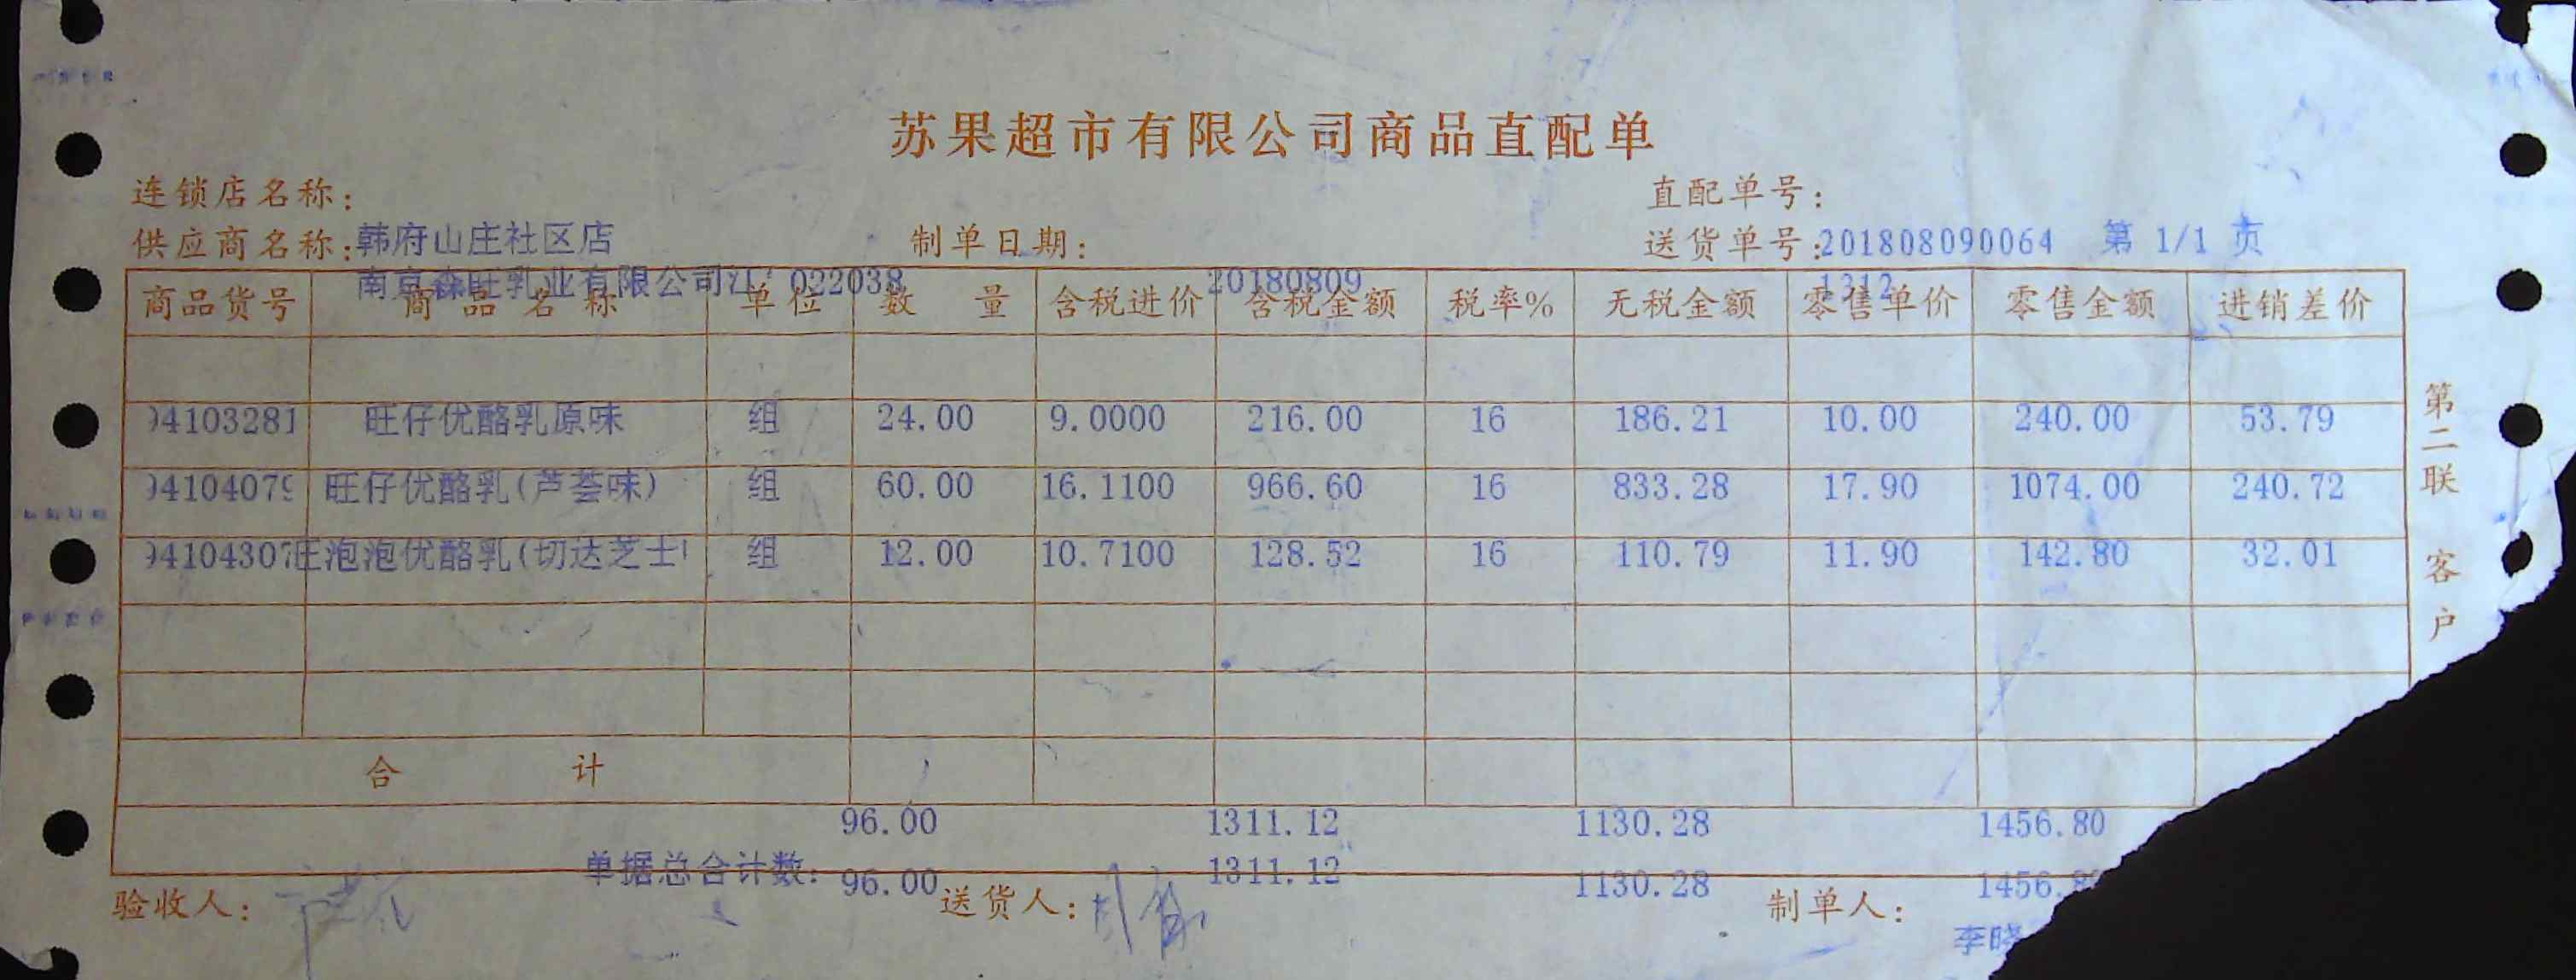 苏果超市有限公司商品直配单
连锁店名称: 直配单号:
供应商名称:韩府山庄社区店 制单日期: 送货单号:201808090064 第 1/1 页
南京森旺乳业有限公司江 022038 20180809 1312
商品货号 商品名称 单位 数量 含税进价 含税金额 税率% 无税金额 零售单价 零售金额 进销差价
94103281 旺仔优酪乳原味 组 24.00 9.0000 216.00 16 186.21 10.00 240.00 53.79
94104079 旺仔优酪乳(芦荟味) 组 60.00 16.1100 966.60 16 833.28 17.90 1074.00 240.72
94104307 旺泡泡优酪乳(切达芝士 组 12.00 10.7100 128.52 16 110.79 11.90 142.80 32.01
合计
96.00 1311.12 1130.28 1456.80
单据总合计数: 96.00 1311.12 1130.28 1456.8
验收人: 送货人: 制单人:
李晓
第二联 客户